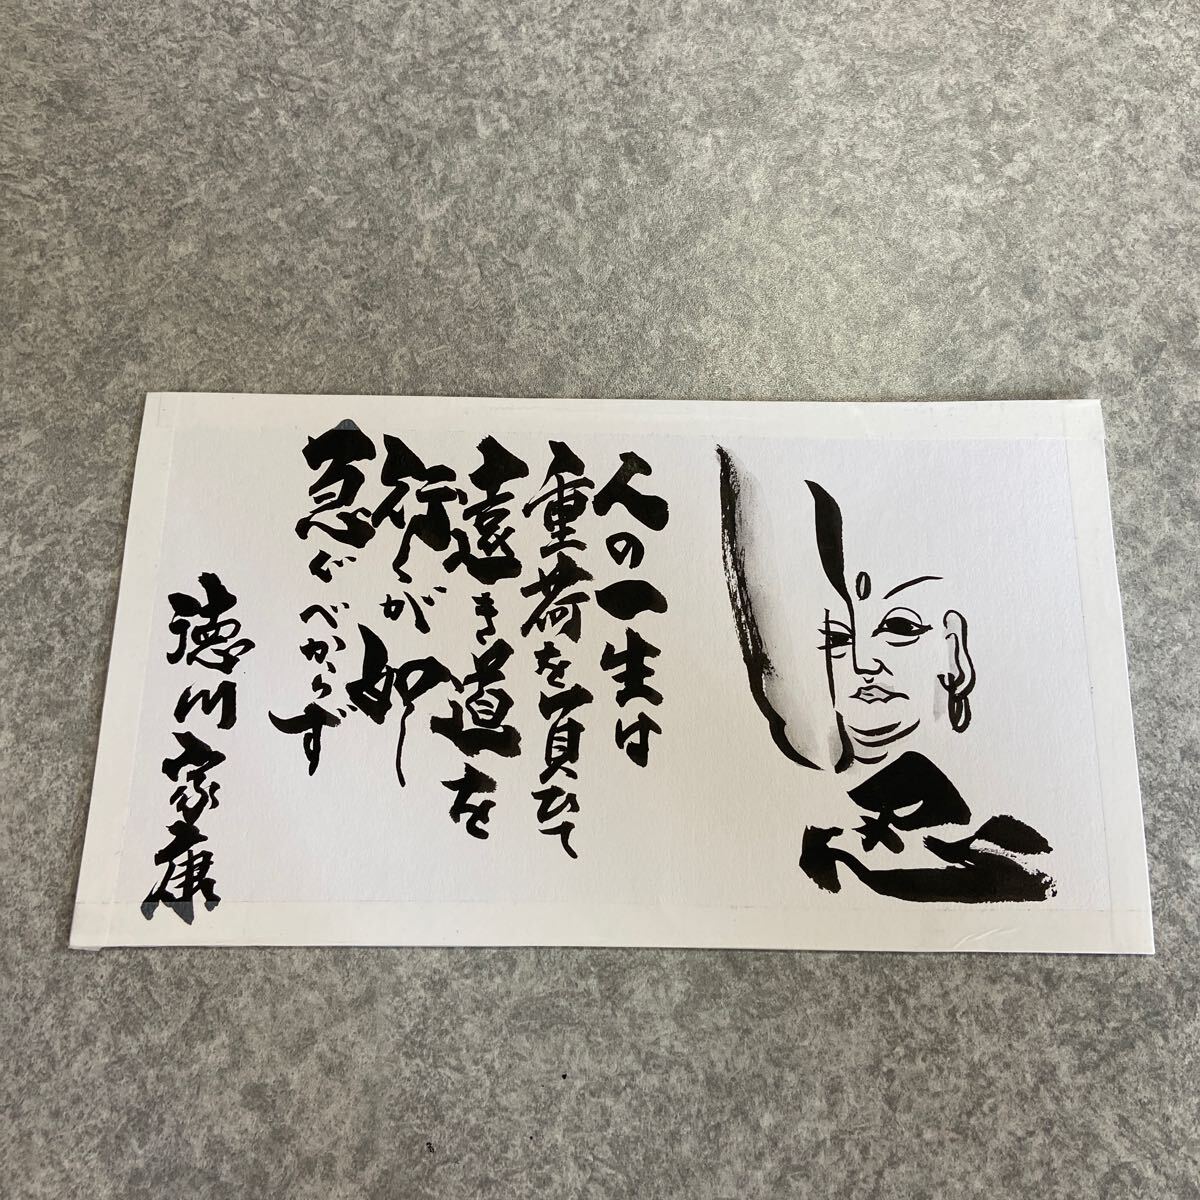 忍
人の一生は
重荷を負ひて
遠き道を
行くが如し
急ぐべからず
徳川家康